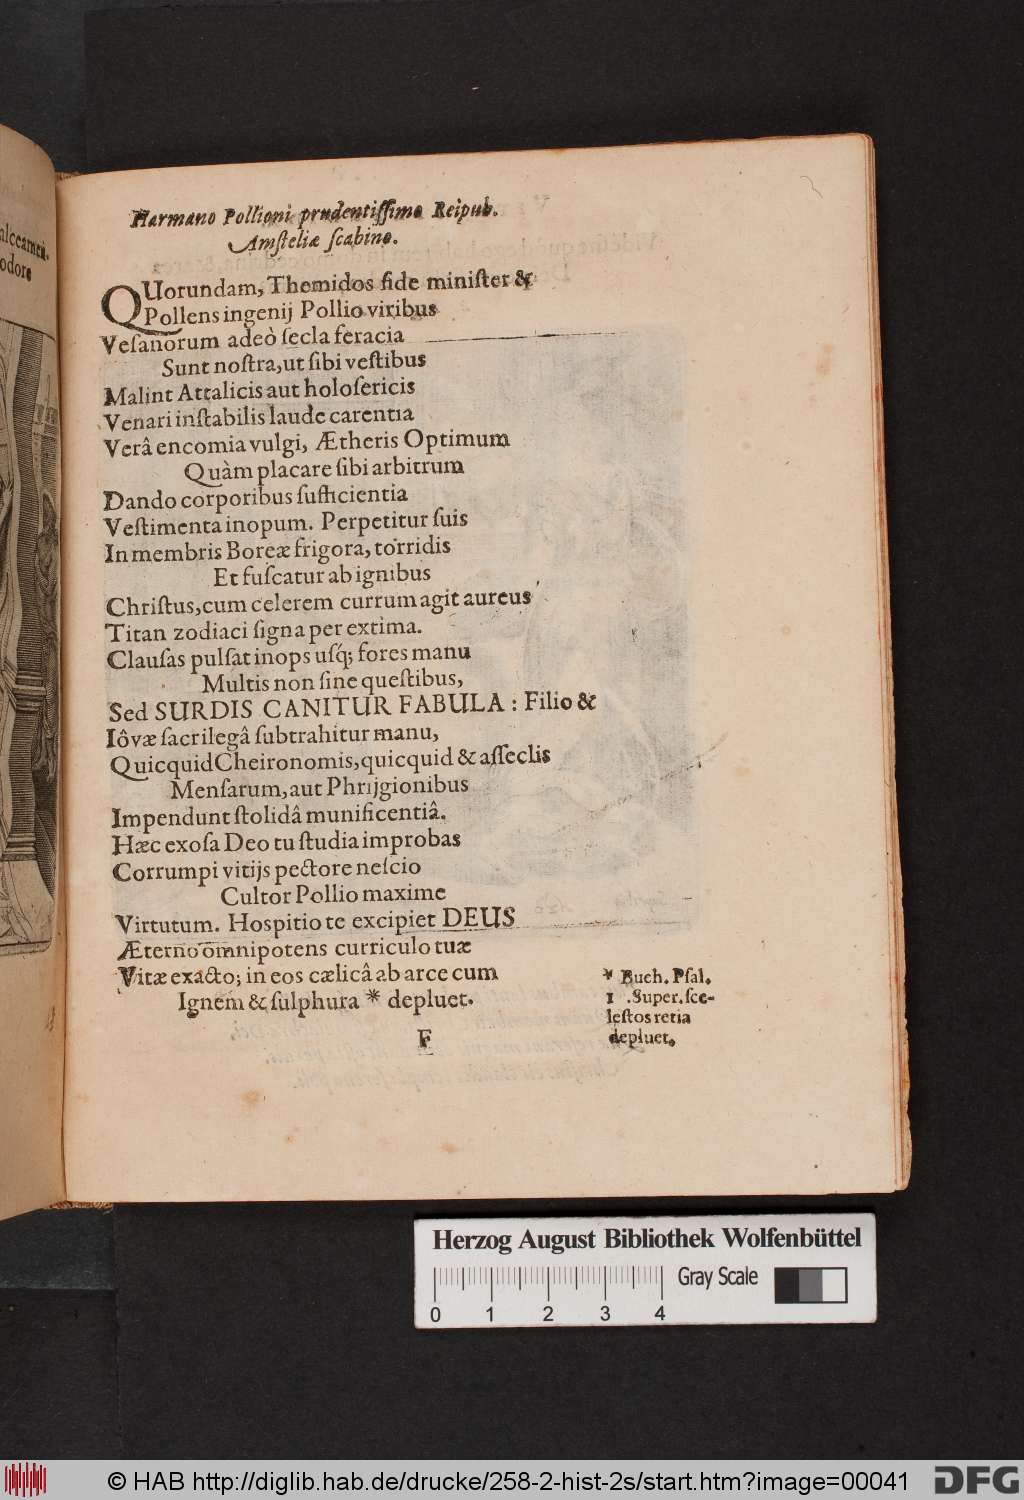 alceamen.
odore
Harmano Pollioni prudentissimo Reipub.
Amsteliæ scabino.
QUorundam, Themidos fide minister &
Pollens ingenij Pollio viribus
Vesanorum adeò secla feracia
Sunt nostra, ut sibi vestibus
Malint Attalicis aut holosericis
Venari instabilis laude carentia
Verâ encomia vulgi, Ætheris Optimum
Quàm placare sibi arbitrum
Dando corporibus sufficientia
Vestimenta inopum. Perpetitur suis
In membris Boreæ frigora, torridis
Et fuscatur ab ignibus
Christus, cum celerem currum agit aureus
Titan zodiaci signa per extima.
Clausas pulsat inops usq; fores manu
Multis non sine questibus,
Sed SURDIS CANITUR FABULA : Filio &
Iôvæ sacrilegâ subtrahitur manu,
Quicquid Cheironomis, quicquid & asseclis
Mensarum, aut Phrijgionibus
Impendunt stolidâ munificentiâ.
Hæc exosa Deo tu studia improbas
Corrumpi vitijs pectore nescio
Cultor Pollio maxime
Virtutum. Hospitio te excipiet DEUS
Æterno omnipotens curriculo tuæ
Vitæ exacto; in eos cælicâ ab arce cum
Ignem & sulphura * depluet.
* Buch. Psal.
1 . Super. sce-
lestos retia
depluet.
F
Herzog August Bibliothek Wolfenbüttel
Gray Scale
0 1 2 3 4
© HAB http://diglib.hab.de/drucke/258-2-hist-2s/start.htm?image=00041
DFG